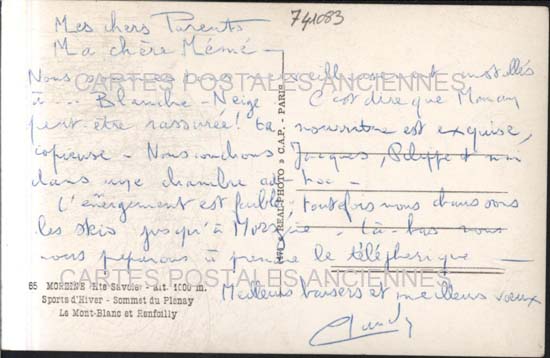 741083
Mes chers Parents
Ma chère Mémé -
Nous sommes merveilleusement installés
à ... Blanche-Neige C'est dire que Maman
peut être rassurée! La nourriture est exquise,
copieuse - Nous couchons Jacques, Philippe et moi
dans une chambre
L' est faible, toutefois nous chaussons
les skis jusqu'à Morzine - Là-bas nous
nous préparons à prendre le téléphérique
Meilleurs baisers et meilleurs voeux
« REAL-PHOTO » C.A.P. - PARIS
65 MORZINE (Hte Savoie) - Alt. 1000 m.
Sports d'Hiver - Sommet du Pleney
Le Mont-Blanc et Renfoilly
CARTES POSTALES ANCIENNES
CARTES POSTALES ANCIENNES